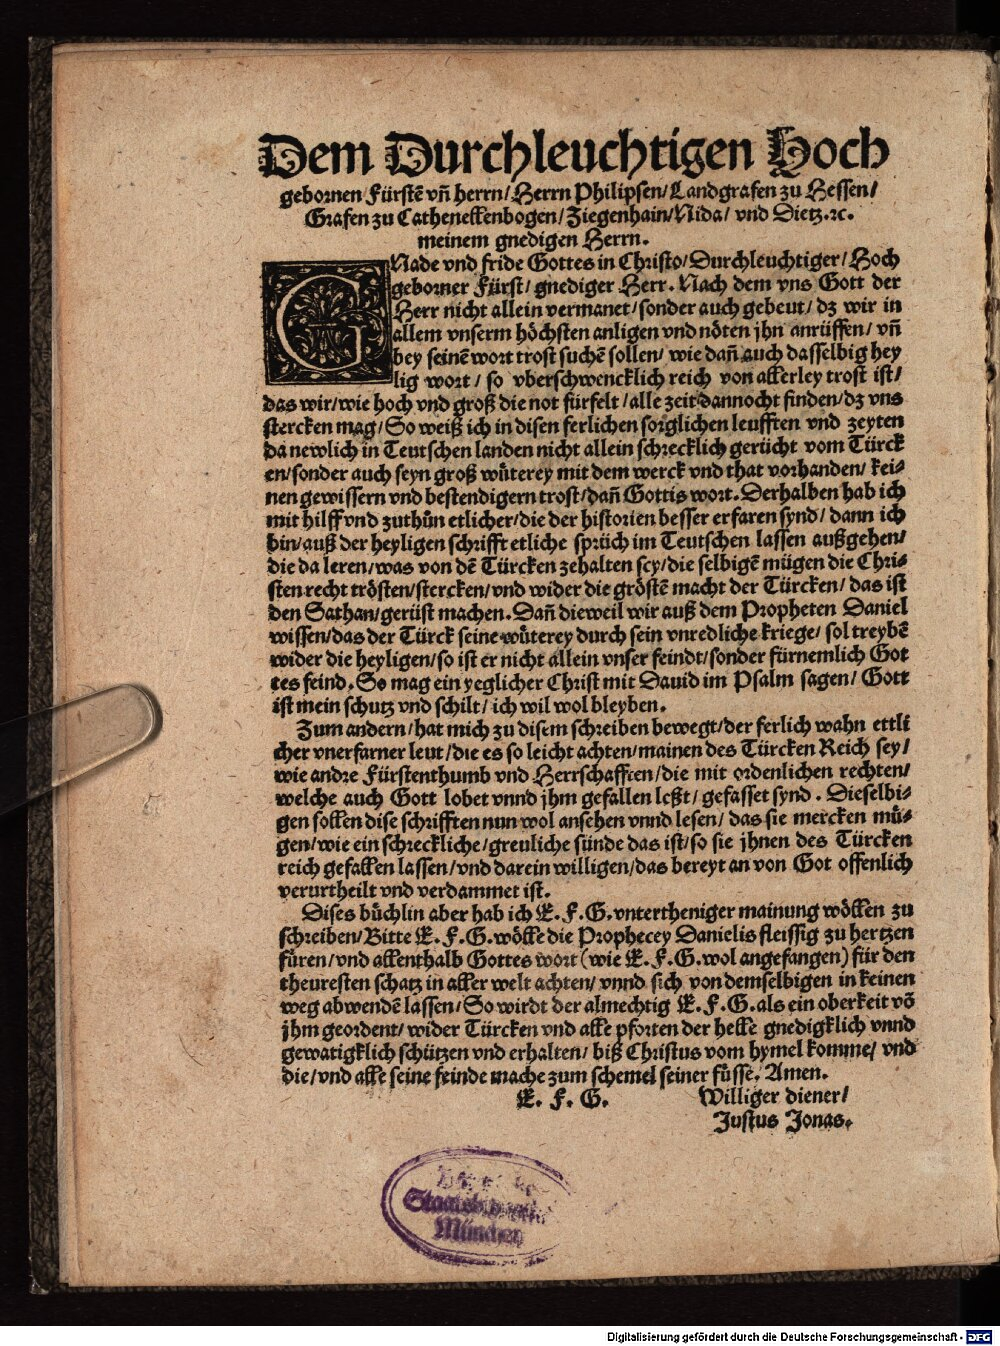 Dem Durchleuchtigen Hoch
gebornen Fürstē vñ herrn/ Herrn Philipsen/ Landgrafen zu Hessen/
Grafen zu Cathenellenbogen/ Ziegenhain/ Nida/ vnd Dietz. ꝛc.
meinem gnedigen Herrn.
GNade vnd fride Gottes in Christo/ Durchleuchtiger/ Hoch
geborner Fürst/ gnediger Herr. Nach dem vns Gott der
Herr nicht allein vermanet/ sonder auch gebeut/ dz wir in
allem vnserm höchsten anligen vnd nöten jhn anrüffen/ vñ
bey seinē wort trost suchē sollen/ wie dañ auch dasselbig hey
lig wort/ so vberschwencklich reich von allerley trost ist/
das wir/ wie hoch vnd groß die not fürfelt/ alle zeit dannocht finden/ dz vns
stercken mag/ So weiß ich in disen ferlichen sorglichen leufften vnd zeyten
da newlich in Teutschen landen nicht allein schrecklich gerücht vom Türck
en/ sonder auch seyn groß wüterey mit dem werck vnd that vorhanden/ kei-
nen gewissern vnd bestendigern trost/ dañ Gottis wort. Derhalben hab ich
mit hilff vnd zuthůn etlicher/ die der historien besser erfaren synd/ dann ich
bin/ auß der heyligen schrifft etliche sprüch im Teutschen lassen außgehen/
die da leren/ was von dē Türcken zehalten sey/ die selbigē mügen die Chri-
sten recht trösten/ stercken/ vnd wider die gröstē macht der Türcken/ das ist
den Sathan/ gerüst machen. Dañ dieweil wir auß dem Propheten Daniel
wissen/ das der Türck seine wüterey durch sein vnredliche kriege/ sol treybē
wider die heyligen/ so ist er nicht allein vnser feindt/ sonder fürnemlich Got
tes feind. So mag ein yeglicher Christ mit Dauid im Psalm sagen/ Gott
ist mein schutz vnd schilt/ ich wil wol bleyben.
Zum andern/ hat mich zu disem schreiben bewegt/ der ferlich wahn ettli
cher vnerfarner leut/ die es so leicht achten/ mainen des Türcken Reich sey/
wie andre Fürstenthumb vnd Herrschafften/ die mit ordenlichen rechten/
welche auch Gott lobet vnnd jhm gefallen leßt/ gefasset synd. Dieselbi-
gen sollen dise schrifften nun wol ansehen vnnd lesen/ das sie mercken mü-
gen/ wie ein schreckliche/ greuliche sünde das ist/ so sie jhnen des Türcken
reich gefallen lassen/ vnd darein willigen/ das bereyt an von Got offenlich
verurtheilt vnd verdammet ist.
Dises büchlin aber hab ich E. F. G. vntertheniger mainung wöllen zu
schreiben/ Bitte E. F. G. wölle die Prophecey Danielis fleissig zu hertzen
füren/ vnd allenthalb Gottes wort (wie E. F. G. wol angefangen) für den
theuresten schatz in aller welt achten/ vnnd sich von demselbigen in keinen
weg abwendē lassen/ So wirdt der almechtig E. F. G. als ein oberkeit vō
jhm geordent/ wider Türcken vnd alle pforten der helle gnedigklich vnnd
gewatigklich schützen vnd erhalten/ biß Christus vom hymel komme/ vnd
die/ vnd alle seine feinde mache zum schemel seiner füsse. Amen.
E. F. G. Williger diener/
Justus Jonas.
München
Digitalisierung gefördert durch die Deutsche Forschungsgemeinschaft - DFG